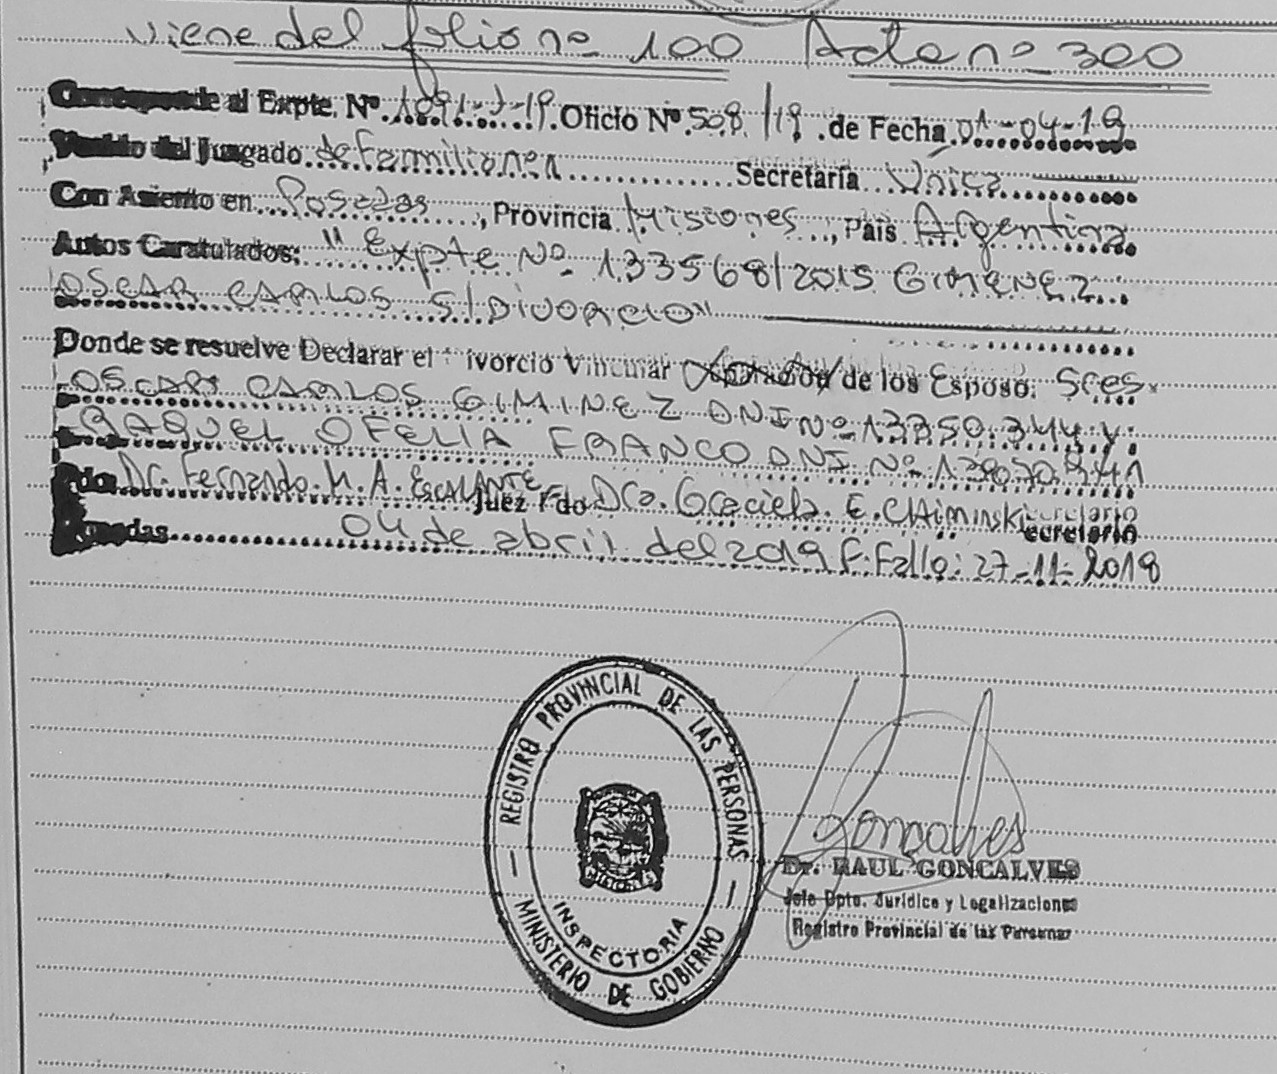 viene del folio nº 100 Acta nº 300
Corresponde al Expte. Nº 1091-J-19. Oficio Nº 508/19 .de Fecha 01-04-19
del Juzgado de Familia Secretaría Única
Con Asiento en Posadas, Provincia Misiones, País Argentina
Autos Caratulados: "Expte Nº 133568/2015 GIMENEZ
OSCAR CARLOS S/DIVORCIO"
Donde se resuelve Declarar el ivorcio Vincular de los Esposo: Sres.
OSCAR CARLOS GIMINEZ DNI Nº 13350.344 y
RAQUEL OFELIA FRANCO DNI Nº
Fdo: Dr. Fernando. M. A. ESCALANTE Juez Fdo Dra. Graciela. E. CHiminski ecretario
04 de abril del 2019 F. Fallo: 27-11-2018
REGISTRO PROVINCIAL DE LAS PERSONAS
INSPECTORIA
MINISTERIO DE GOBIERNO
Goncalves
Dr. RAUL GONCALVES
Jefe Dpto. Jurídico y Legalizaciones
Registro Provincial de las Personas